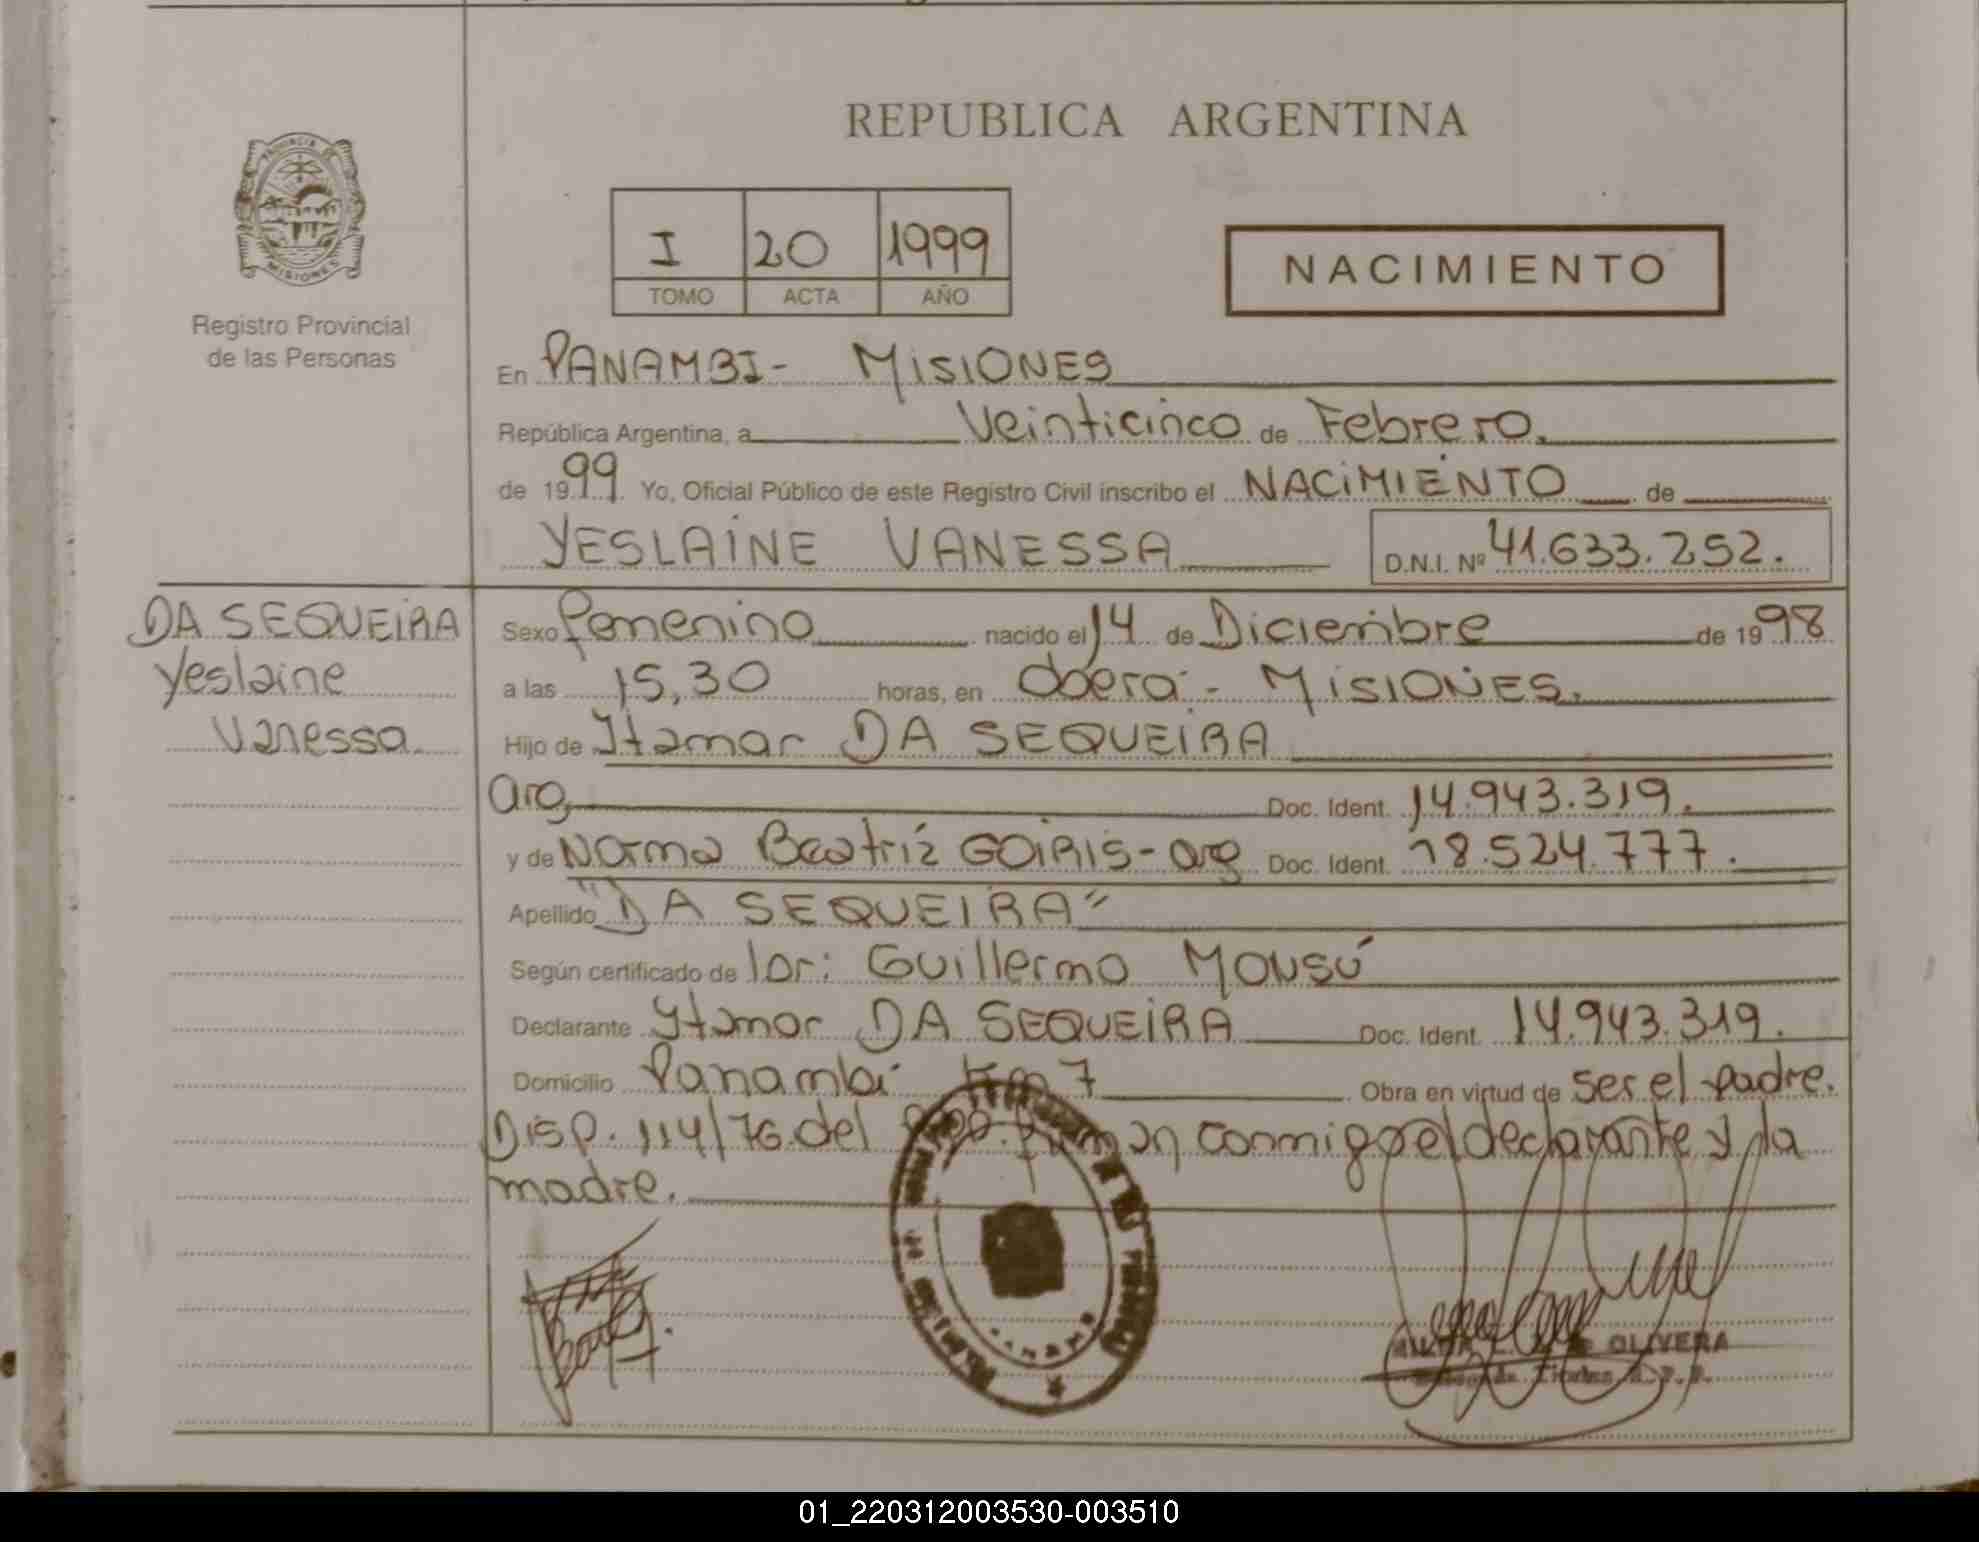 REPUBLICA ARGENTINA
PROVINCIA DE
MISIONES
Registro Provincial
de las Personas
I 20 1999
TOMO ACTA AÑO
NACIMIENTO
En PANAMBI - MISIONES
República Argentina, a Veinticinco de Febrero.
de 1999. Yo, Oficial Público de este Registro Civil inscribo el NACIMIENTO de
YESLAINE VANESSA D.N.I. Nº 41.633.252.
DA SEQUEIRA
Yeslaine
Vanessa.
Sexo femenino nacido el 14 de Diciembre de 1998
a las 15,30 horas, en Oberá - MISIONES.
Hijo de Itamar DA SEQUEIRA
arg. Doc. Ident. 14.943.319.
y de Norma Beatriz GOIRIS - arg Doc. Ident. 18.524.777.
Apellido "DA SEQUEIRA"
Según certificado de Guillermo Mousú
Declarante Itamar DA SEQUEIRA Doc. Ident. 14.943.319.
Domicilio Panambí Km 7 Obra en virtud de ser el padre.
Disp. 114/76 del firman conmigo el declarante y la
madre.
OLIVERA
01_220312003530-003510